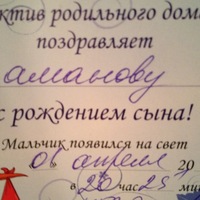 ктив родильного дома
поздравляет
аманову
с рождением сына!
Мальчик появился на свет
06 апреля 20
в 20 час 25 ми